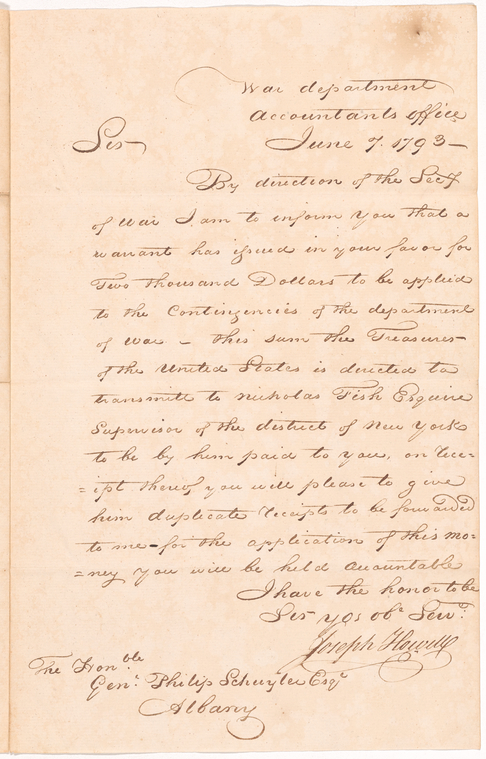 War department
Accountants office
June 7. 1793 —
Sir —
By direction of the Secy
of War I am to inform you that a
warrant has issued in your favor for
Two thousand Dollars to be applied
to the Contingencies of the department
of War – this sum the Treasurer
of the United States is directed to
transmitt to Nicholas Fish Esquire
Supervisor of the district of New York
to be by him paid to you, on rece=
=ipt thereof you will please to give
him duplicate receipts to be forwarded
to me – for the application of this mo=
=ney you will be held accountable
I have the honor to be
Sir yos obt Servt
Joseph Howell
The Honble
Genl Philip Schuyler Esqr
Albany